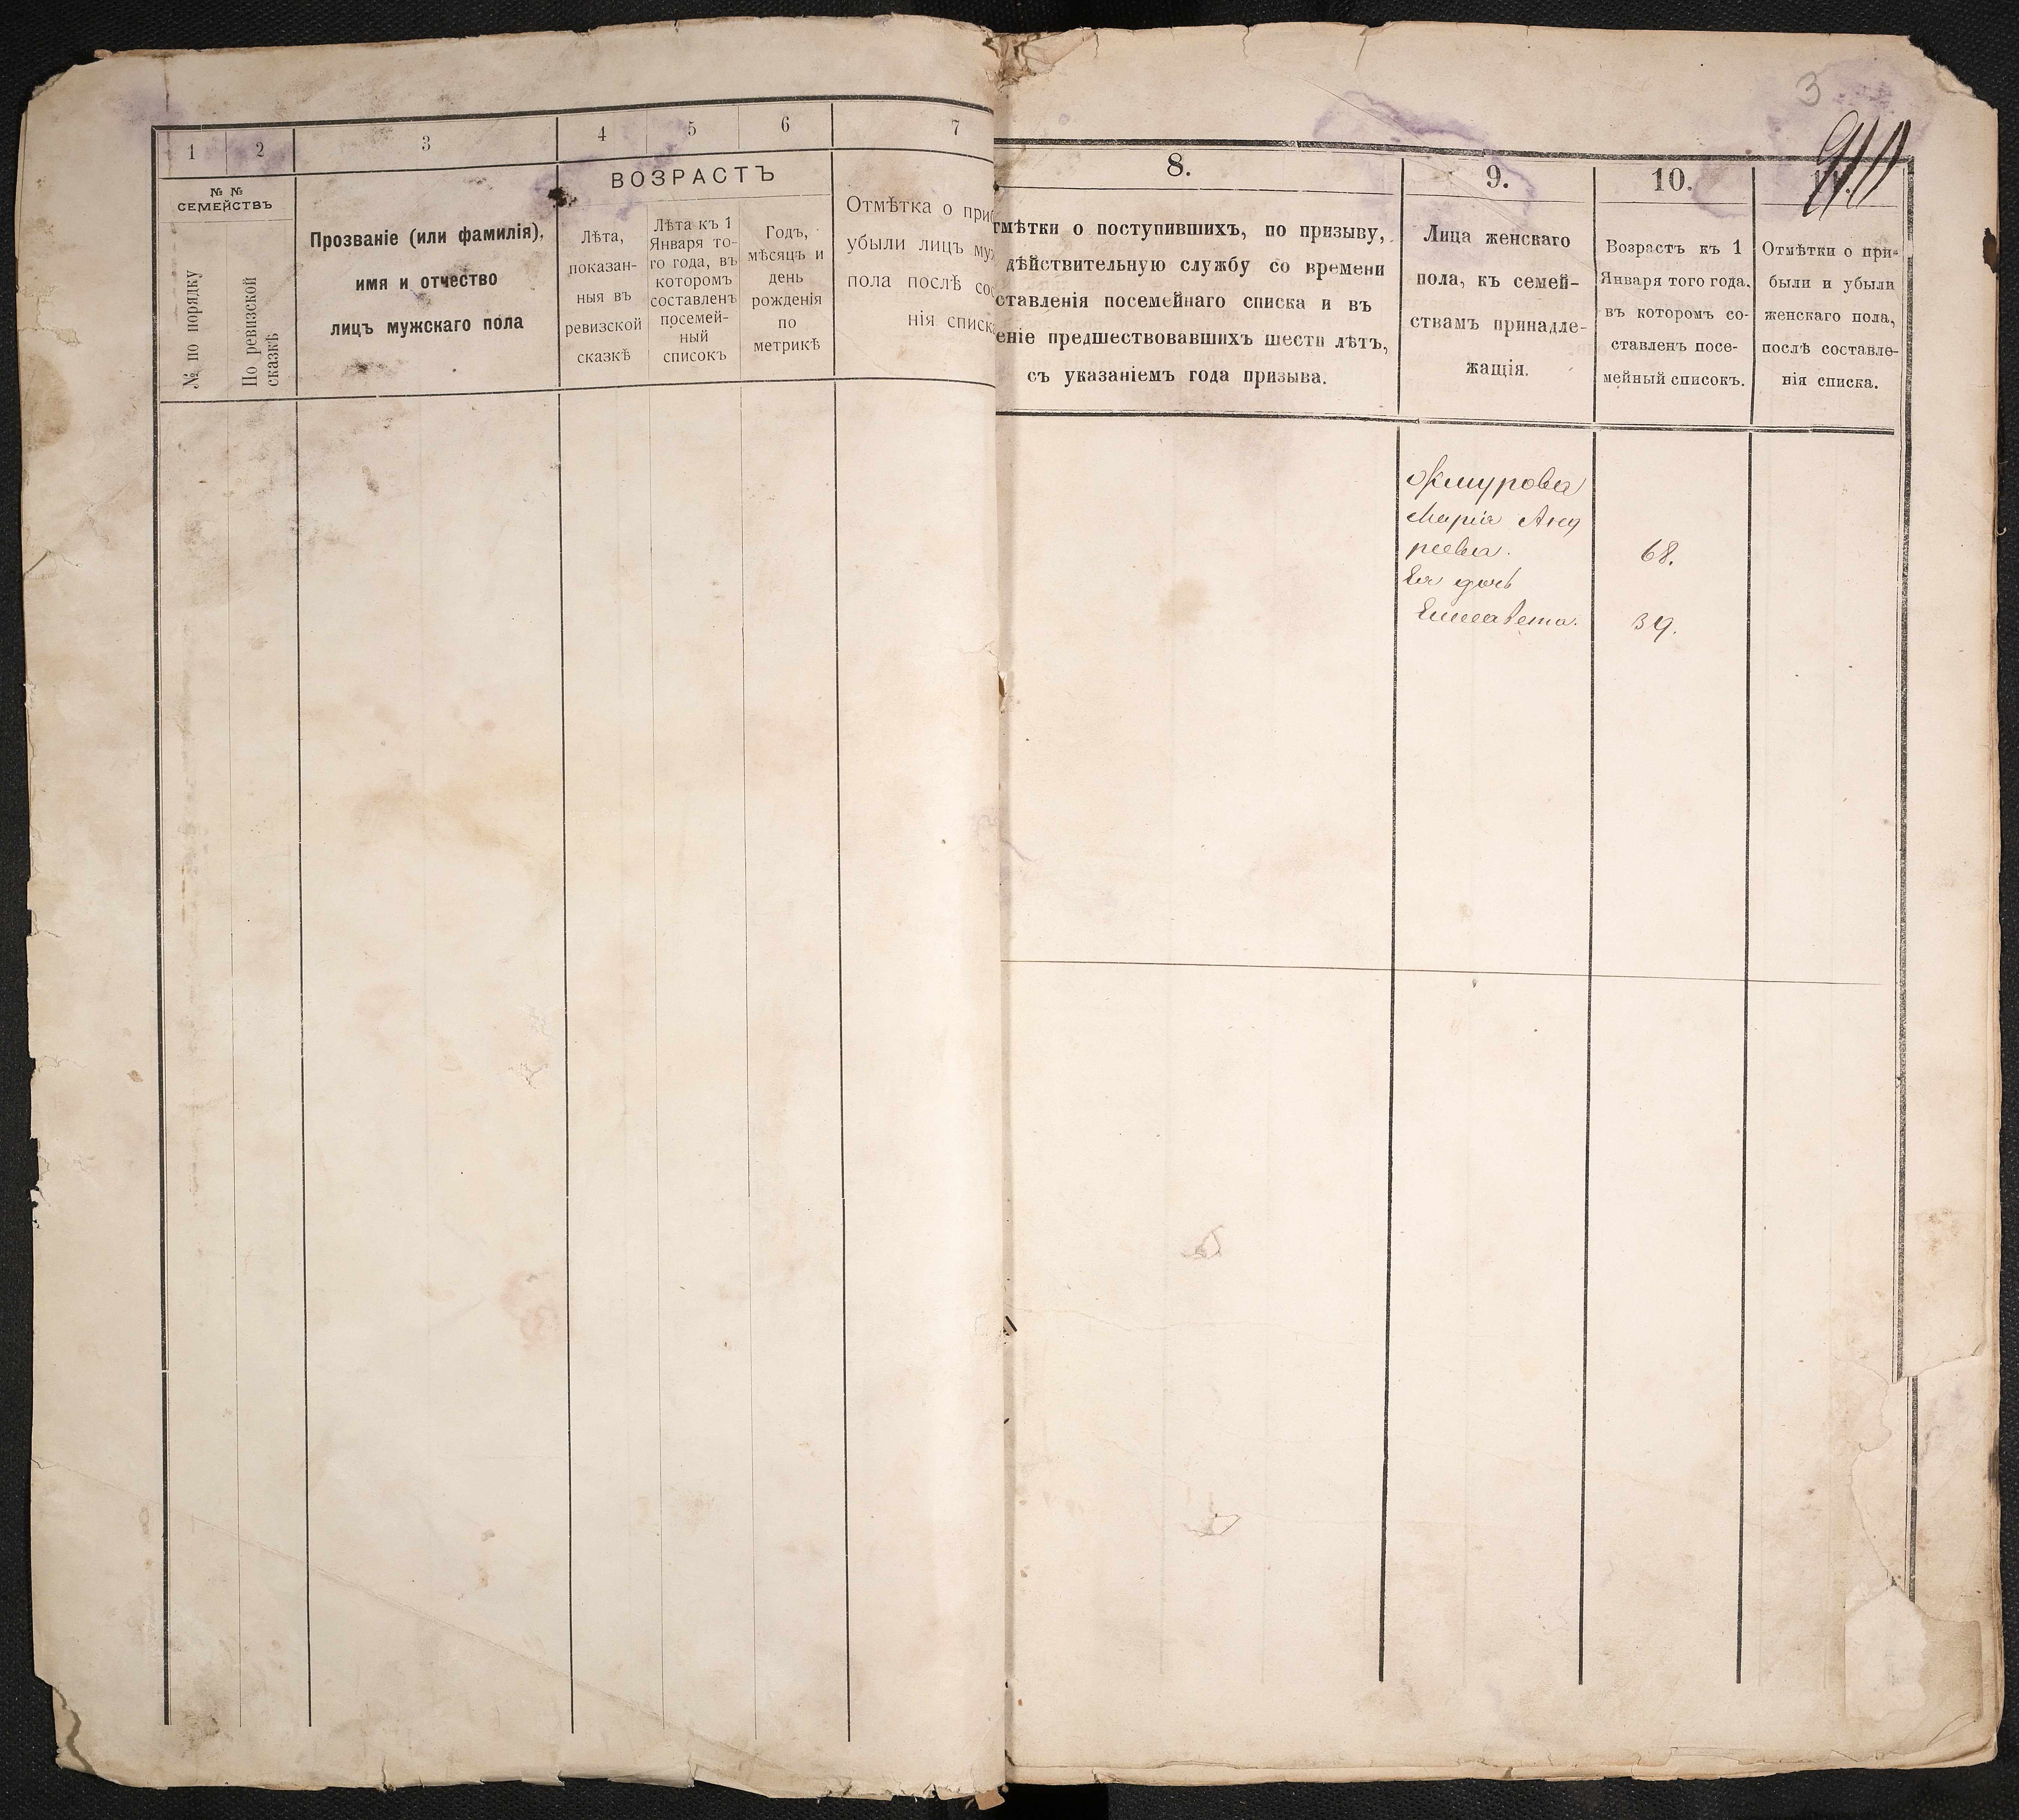 1
2
3
4
5
6
7
№ №
СЕМЕЙСТВЪ
№ по порядку
По ревизской
сказкѣ
Прозваніе (или фамилія),
имя и отчество
лицъ мужскаго пола
ВОЗРАСТЪ
Лѣта,
показан-
ныя въ
ревизской
сказкѣ
Лѣта къ 1
Января то-
го года, въ
которомъ
составленъ
посемей-
ный
списокъ
Годъ,
мѣсяцъ и
день
рожденія
по
метрикѣ
Отмѣтка о при
убыли лицъ му
пола послѣ со
нія списк
3
8.
9.
10.
тмѣтки о поступившихъ, по призыву,
дѣйствительную службу со времени
ставленія посемейнаго списка и въ
еніе предшествовавшихъ шести лѣтъ,
съ указаніемъ года призыва.
Лица женскаго
пола, къ семей-
ствамъ принадле-
жащія.
Возрастъ къ 1
Января того года,
въ которомъ со-
ставленъ посе-
мейный списокъ.
Отмѣтки о при-
были и убыли
женскаго пола,
послѣ составле-
нія списка.
Жмурова
Марія Анд
реева. 68.
Ея дочь
Елисавета. 39.